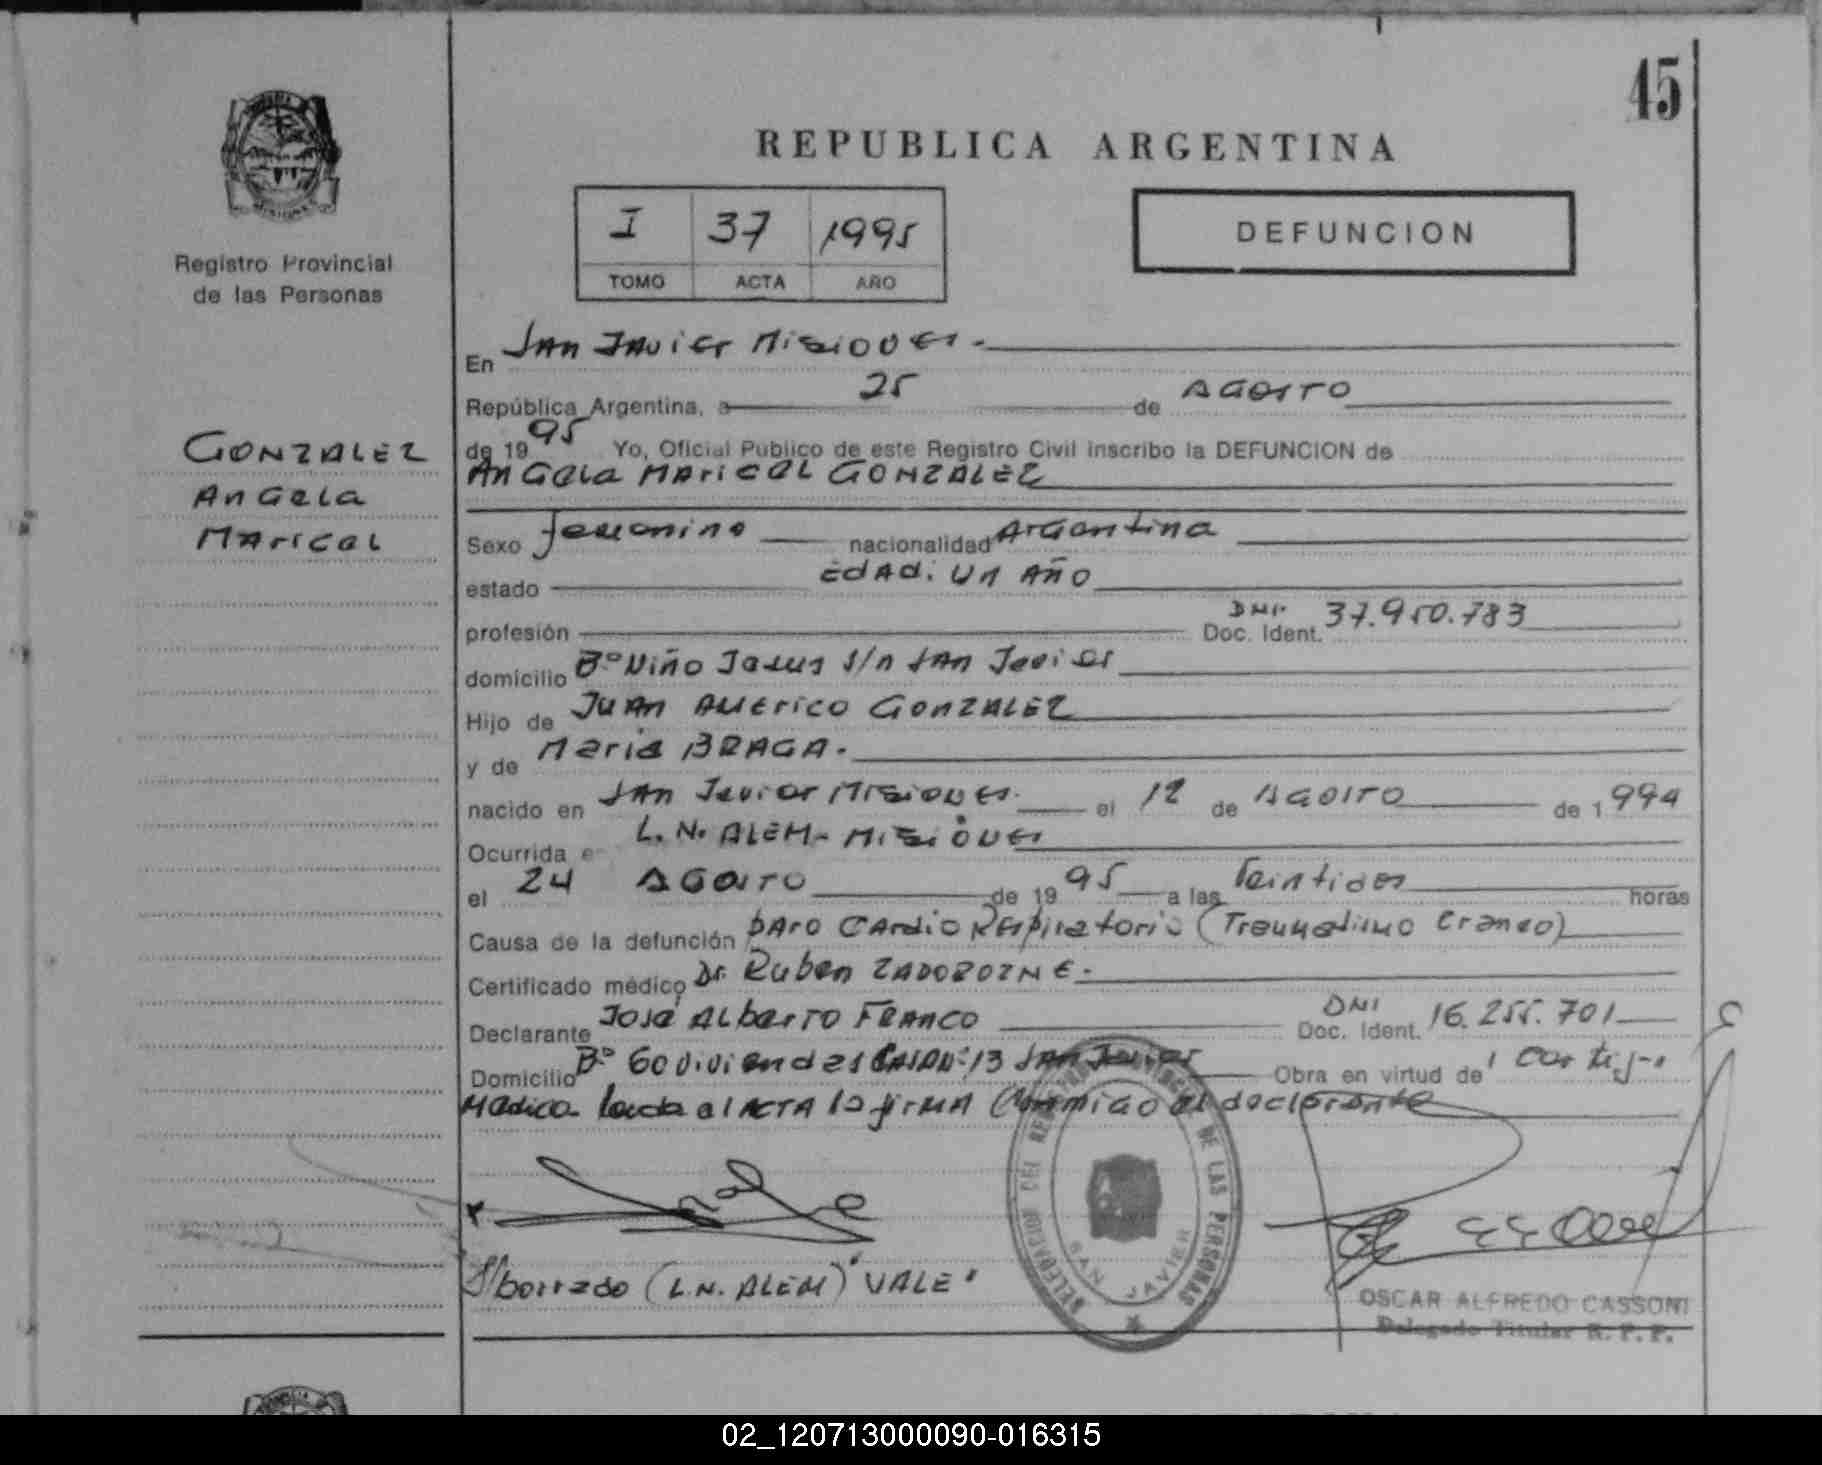 45
REPUBLICA ARGENTINA
I 37 1995
TOMO ACTA AÑO
DEFUNCION
Registro Provincial
de las Personas
GONZALEZ
Angela
Maricel
En San Javier Misiones.
República Argentina, a 25 de Agosto
de 1995 Yo, Oficial Publico de este Registro Civil inscribo la DEFUNCION de
Angela Maricel GONZALEZ
Sexo femenino nacionalidad Argentina
estado EDAD: UN AÑO
profesión DNI. Doc. Ident. 37.950.783
domicilio Bº Niño Jesus s/n San Javier
Hijo de Juan Americo GONZALEZ
y de Maria BRAGA.
nacido en San Javier Misiones. el 12 de Agosto de 1994
Ocurrida e L.N. ALEM- Misiones
el 24 Agosto de 1995 a las Veintidos horas
Causa de la defunción paro Cardio Respiratorio (Traumatismo Craneo)
Certificado médico Dr. Ruben ZADOROZNE.
Declarante José Alberto FRANCO DNI Doc. Ident. 16.255.701
Domicilio Bº 60 viviendas CASA Nº: 13 San Javier Obra en virtud de
Medico leida el ACTA la firma Conmigo el declarante
DELEGACION DEL REGISTRO PROVINCIAL DE LAS PERSONAS
SAN JAVIER
S/borrado (L.N. ALEM) "VALE"
OSCAR ALFREDO CASSONI
Delegado Titular R. P. P.
02_120713000090-016315